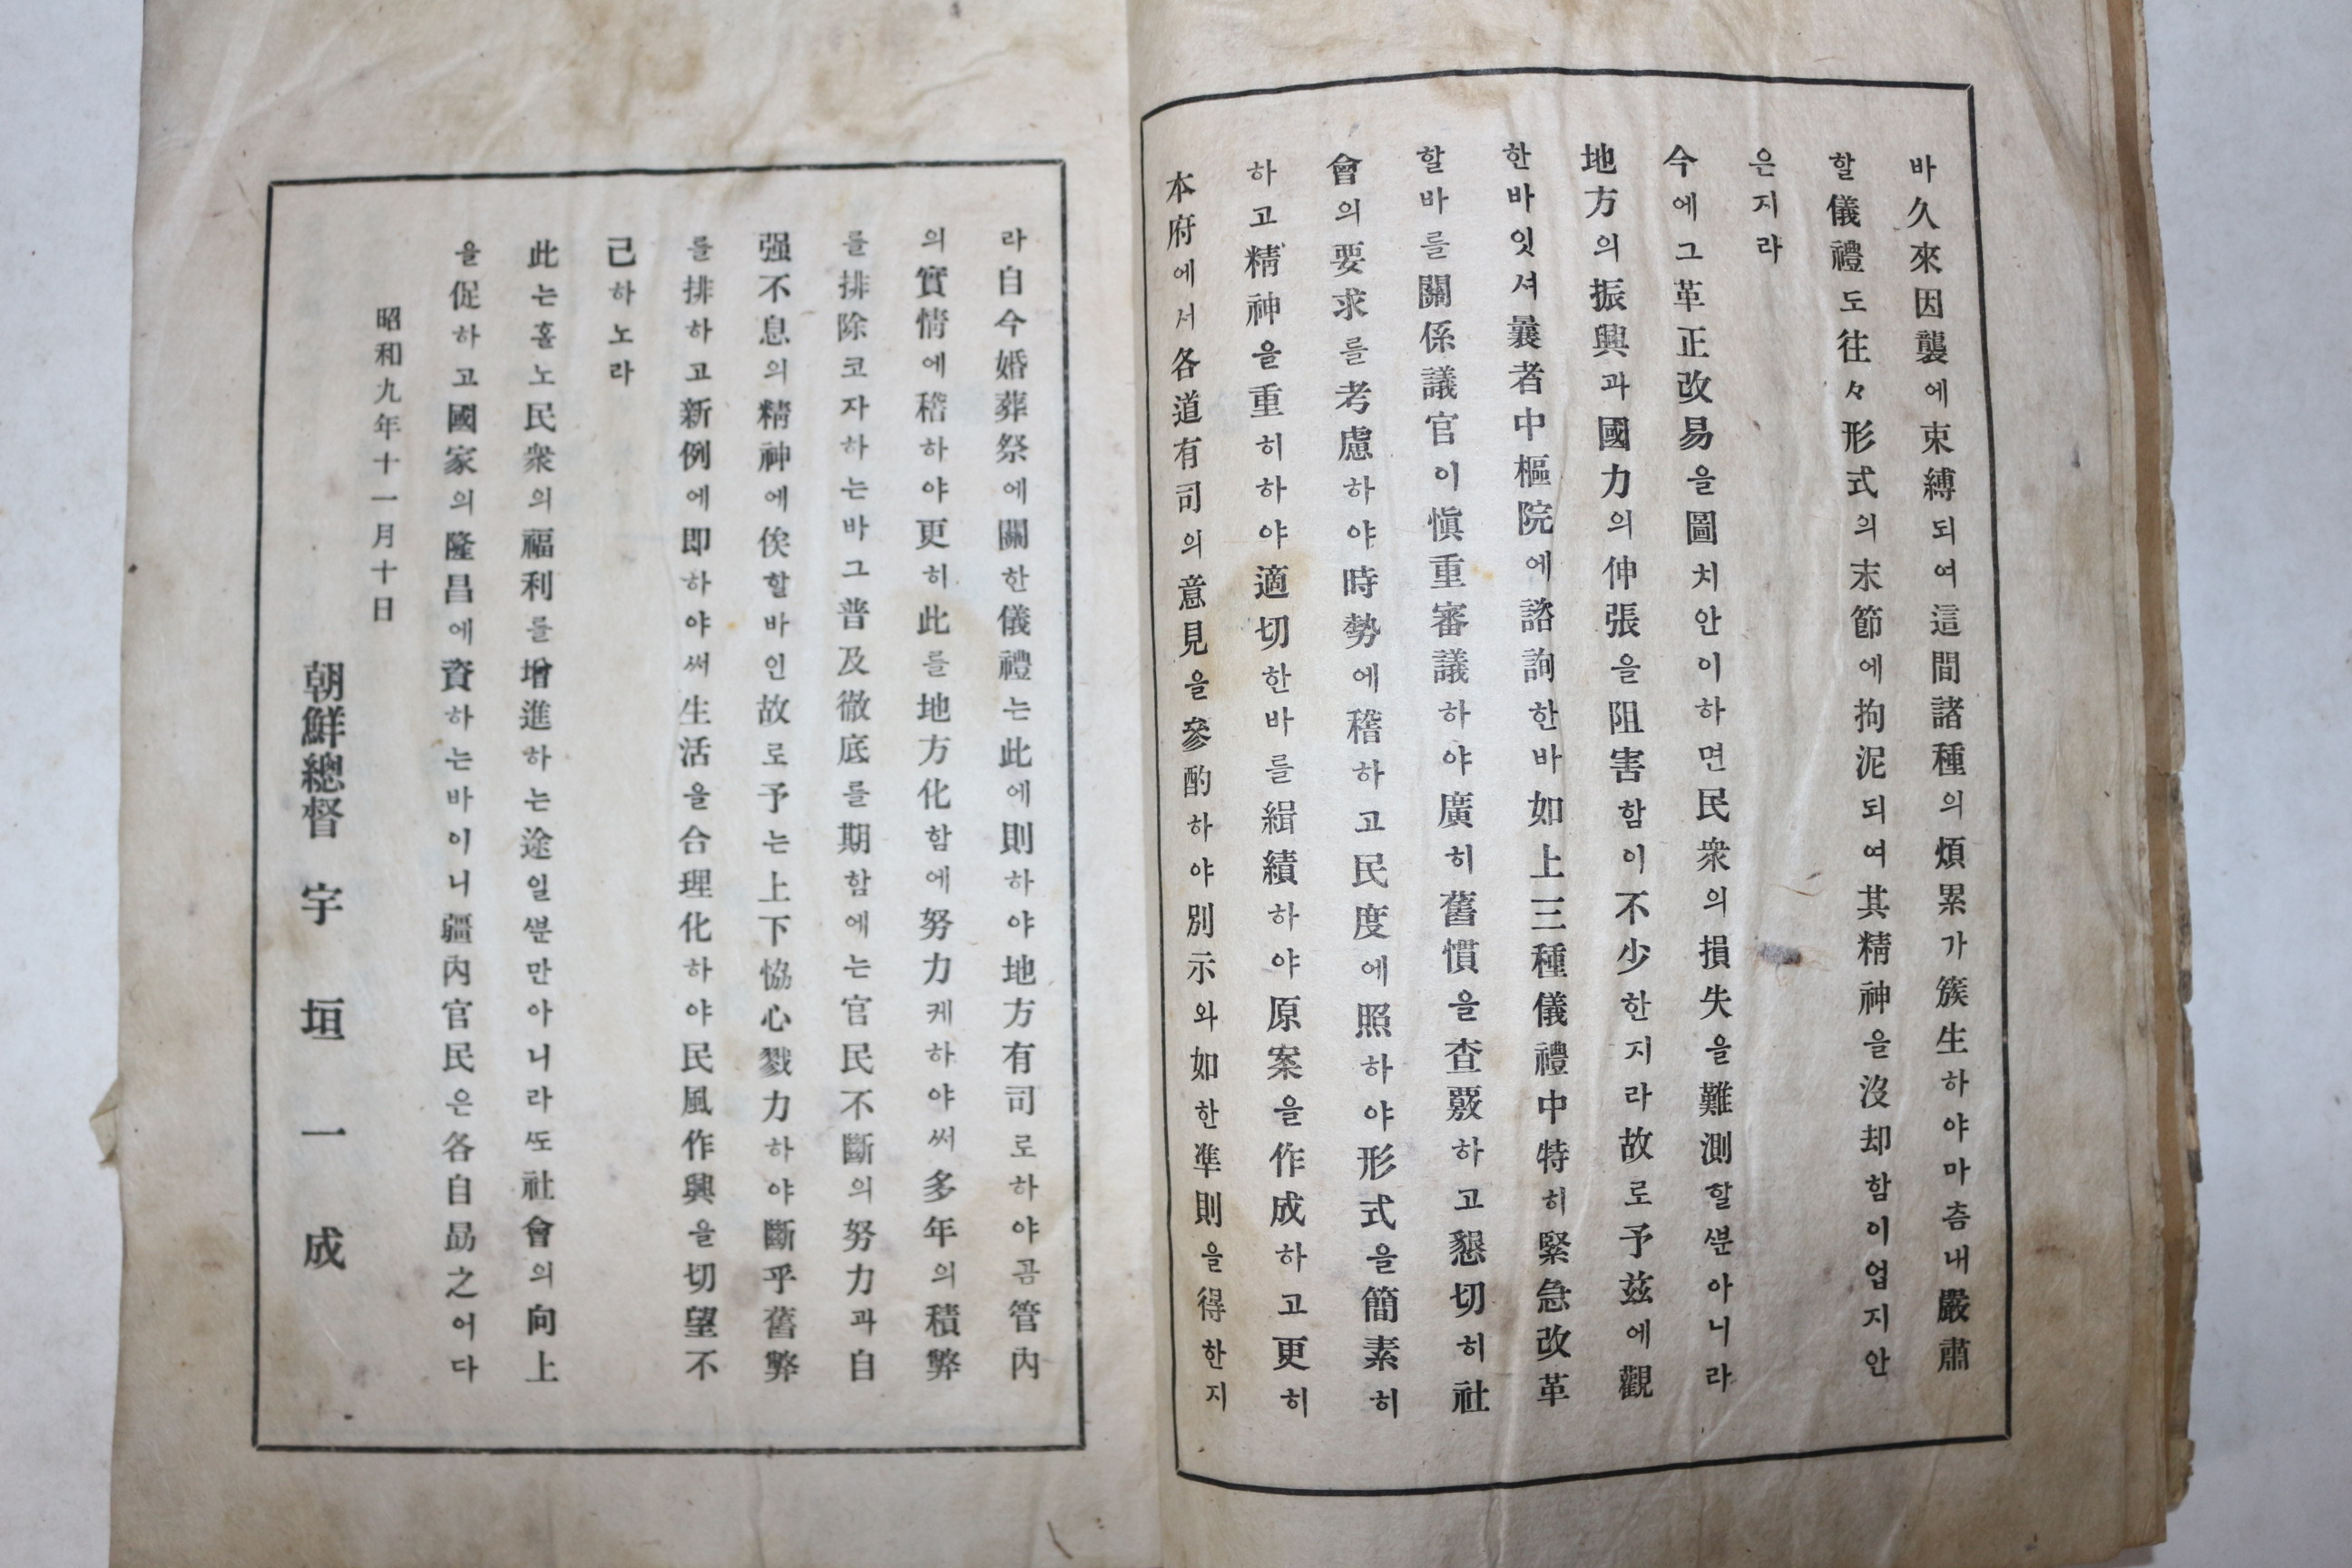 바久來因襲에束縛되여這間諸種의煩累가簇生하야마츰내嚴肅
할儀禮도往々形式의末節에拘泥되여其精神을沒却함이업지안
은지라
今에그革正改易을圖치안이하면民衆의損失을難測할ᄲᅮᆫ아니라
地方의振興과國力의伸張을阻害함이不少한지라故로予玆에觀
한바잇셔曩者中樞院에諮詢한바如上三種儀禮中特히緊急改革
할바를關係議官이愼重審議하야廣히舊慣을査覈하고懇切히社
會의要求를考慮하야時勢에稽하고民度에照하야形式을簡素히
하고精神을重히하야適切한바를緝績하야原案을作成하고更히
本府에서各道有司의意見을參酌하야別示와如한準則을得한지
라自今婚葬祭에關한儀禮는此에則하야地方有司로하야곰管內
의實情에稽하야更히此를地方化함에努力케하야써多年의積弊
를排除코자하는바그普及徹底를期함에는官民不斷의努力과自
强不息의精神에俟할바인故로予는上下協心戮力하야斷乎舊弊
를排하고新例에即하야써生活을合理化하야民風作興을切望不
己하노라
此는홀노民衆의福利를增進하는途일ᄲᅮᆫ만아니라ᄯᅩ社會의向上
을促하고國家의隆昌에資하는바이니疆內官民은各自勗之어다
昭和九年十一月十日
朝鮮總督 宇垣一成